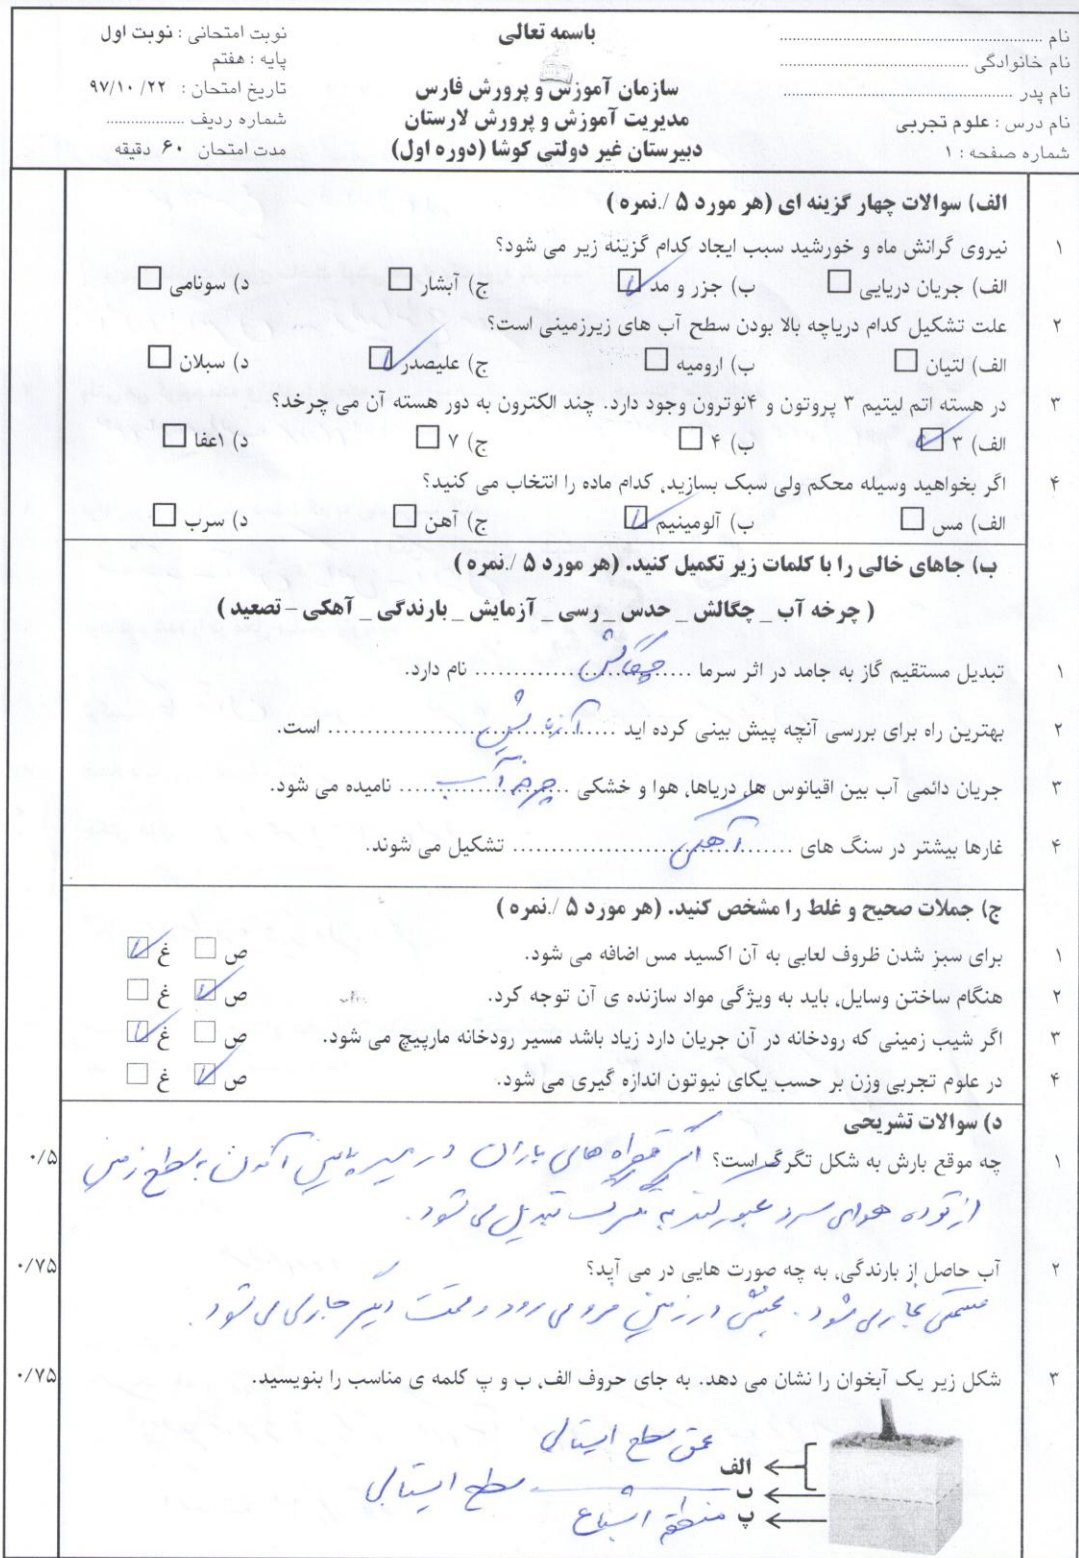 باسمه تعالی
نام ........................................
نام خانوادگی ........................................
نام پدر ........................................
نام درس : علوم تجربی
شماره صفحه : ۱
سازمان آموزش و پرورش فارس
مدیریت آموزش و پرورش لارستان
دبیرستان غیر دولتی کوشا (دوره اول)
نوبت امتحانی : نوبت اول
پایه : هفتم
تاریخ امتحان : ۹۷/۱۰/۲۲
شماره ردیف ..................
مدت امتحان ۶۰ دقیقه
الف) سوالات چهار گزینه ای (هر مورد ۵ /.نمره )
۱ نیروی گرانش ماه و خورشید سبب ایجاد کدام گزینه زیر می شود؟
الف) جریان دریایی □ ب) جزر و مد ☑ ج) آبشار □ د) سونامی □
۲ علت تشکیل کدام دریاچه بالا بودن سطح آب های زیرزمینی است؟
الف) لتیان □ ب) ارومیه □ ج) علیصدر ☑ د) سبلان □
۳ در هسته اتم لیتیم ۳ پروتون و ۴نوترون وجود دارد. چند الکترون به دور هسته آن می چرخد؟
الف) ۳ ☑ ب) ۴ □ ج) ۷ □ د) ۱عفا □
۴ اگر بخواهید وسیله محکم ولی سبک بسازید، کدام ماده را انتخاب می کنید؟
الف) مس □ ب) آلومینیم ☑ ج) آهن □ د) سرب □
ب) جاهای خالی را با کلمات زیر تکمیل کنید. (هر مورد ۵ /.نمره )
( چرخه آب _ چگالش _ حدس _ رسی _ آزمایش _ بارندگی _ آهکی – تصعید )
۱ تبدیل مستقیم گاز به جامد در اثر سرما ..... چگالش ..... نام دارد.
۲ بهترین راه برای بررسی آنچه پیش بینی کرده اید ..... آزمایش ..... است.
۳ جریان دائمی آب بین اقیانوس ها، دریاها، هوا و خشکی ..... چرخه آب ..... نامیده می شود.
۴ غارها بیشتر در سنگ های ..... آهکی ..... تشکیل می شوند.
ج) جملات صحیح و غلط را مشخص کنید. (هر مورد ۵ /.نمره )
۱ برای سبز شدن ظروف لعابی به آن اکسید مس اضافه می شود. ص □ غ ☑
۲ هنگام ساختن وسایل، باید به ویژگی مواد سازنده ی آن توجه کرد. ص ☑ غ □
۳ اگر شیب زمینی که رودخانه در آن جریان دارد زیاد باشد مسیر رودخانه مارپیچ می شود. ص □ غ ☑
۴ در علوم تجربی وزن بر حسب یکای نیوتون اندازه گیری می شود. ص ☑ غ □
د) سوالات تشریحی
۱ چه موقع بارش به شکل تگرگ است؟ اگر قطره های باران در مسیر پایین آمدن به سطح زمین ۰/۵
از توده هوای سرد عبور کند به تگرگ تبدیل می شود.
۲ آب حاصل از بارندگی، به چه صورت هایی در می آید؟ ۰/۷۵
قسمتی بخار می شود. بخشی در زمین فرو می رود و قسمت دیگر جاری می شود.
۳ شکل زیر یک آبخوان را نشان می دهد. به جای حروف الف، ب و پ کلمه ی مناسب را بنویسید. ۰/۷۵
الف عمق سطح ایستابی
ب سطح ایستابی
پ منطقه اشباع